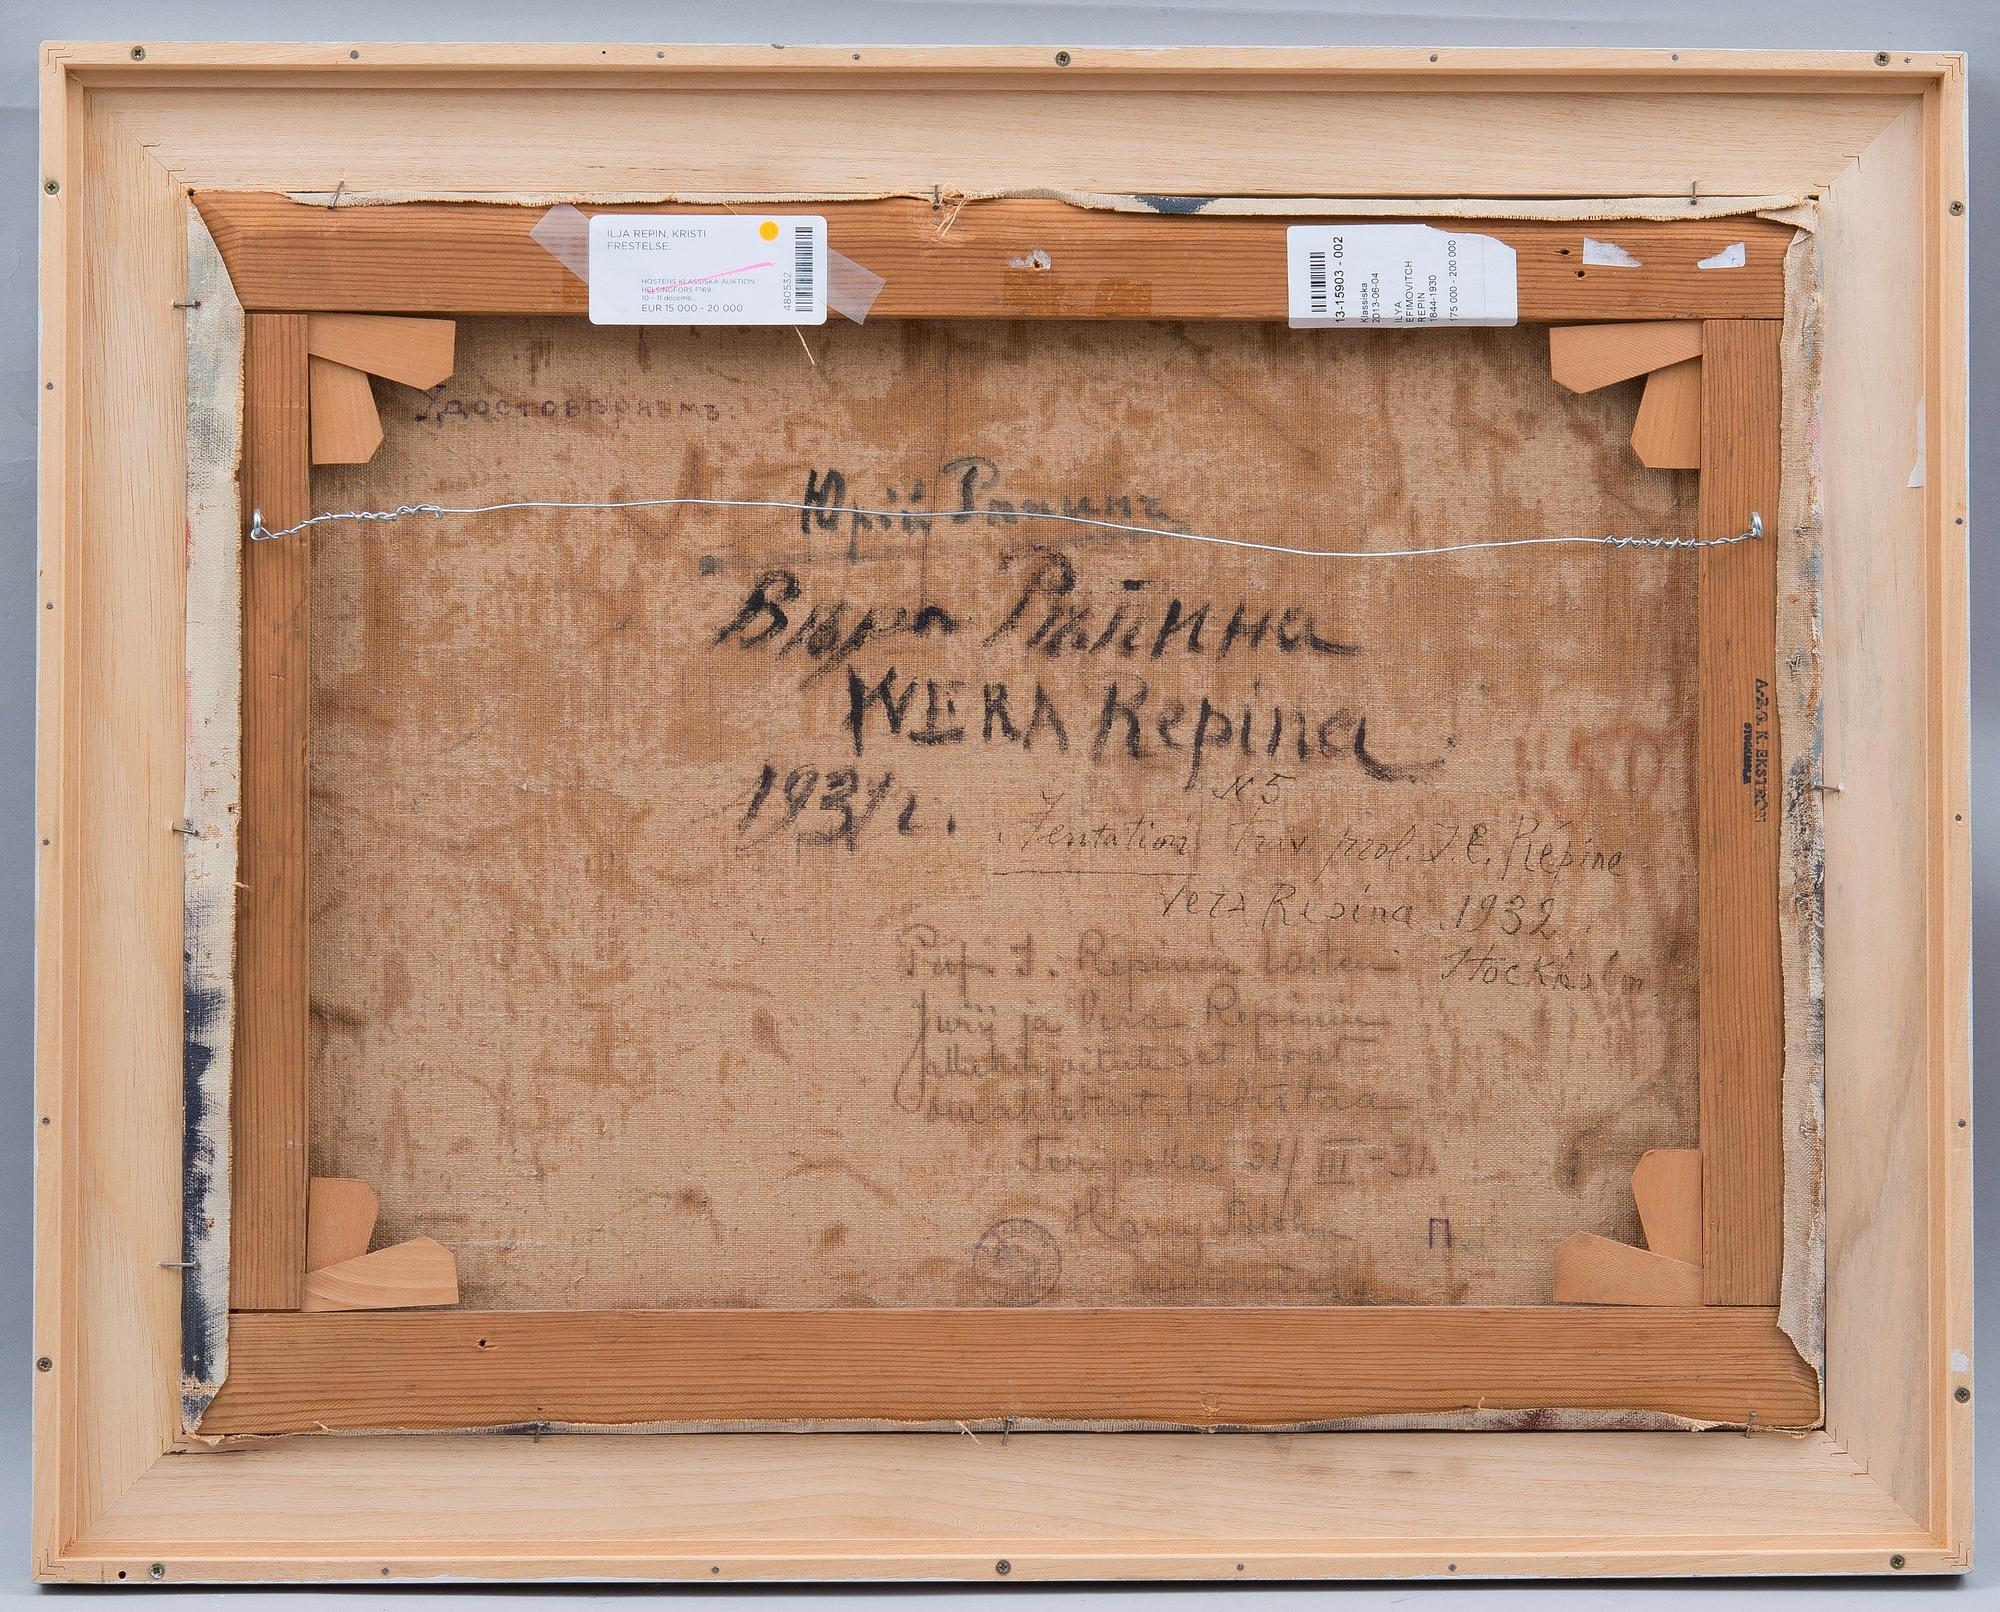 ILJA REPIN, KRISTI
FRESTELSE.
HÖSTENS KLASSISKA AUKTION.
HELSINGFORS F169
10 - 11 decemb...
EUR 15 000 - 20 000
480532
13-15903 - 002
Klassiska
2013-06-04
ILYA
EFIMOVITCH
REPIN
1844-1930
175 000 - 200 000
Удостовѣряемъ:
Юрій Рѣпинъ
Вѣра Рѣпина
WERA Repina
1931 г.
N 5
Tentation prof. I. E. Répine
Vera Repina 1932
Stockholm
Prof. I. Repinin lasten
Jurij ja Vera Repinin
allekirjoitukset ovat
todistaa
Terijoella 31/III-31
Harry
П